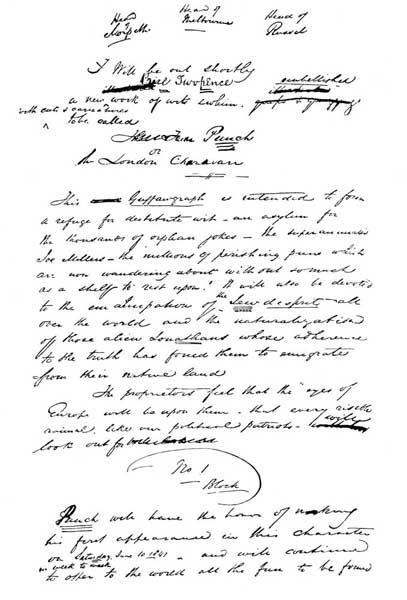 Head of Melbourne
Head of
Head of Russel
I Will be out shortly
Price Twopence
embellished
a new work of wit & whim.
with cuts & caricatures
to be called
Punch
or
the London Charavari
This Guffawgraph is intended to form
a refuge for destitute wit – an asylum for
the thousands of orphan jokes – the superannuated
Joe Millers – the millions of perishing puns which
are now wandering about without so much
as a shelf to rest upon! It will also be devoted
to the emancipation of the Jew de sprits all
over the world and the naturalization
of those alien Jonathans whose adherence
to the truth has forced them to emigrate
from their native land
The proprietors feel that the eyes of
Europe will be upon them – that every risible
animal, like our political patriots – will
look out for
No 1
Block
Punch will have the honor of making
his first appearance in this character
on Saturday, June 10 1841 – and will continue
from week to week
to offer to the world all the fun to be found